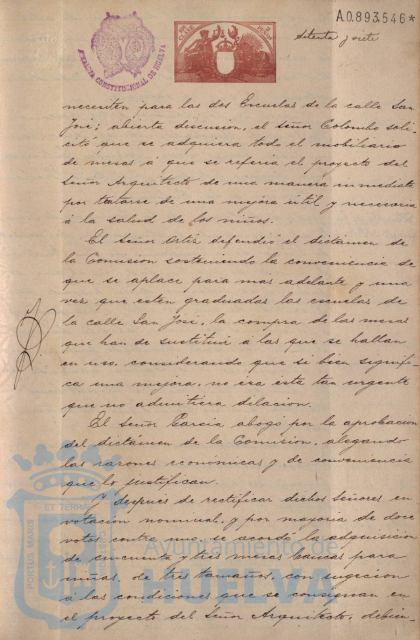 A.0.893,546*
ALCALDIA CONSTITUCIONAL DE HUELVA
setenta y siete
necesiten para las dos Escuelas de la calle San
José; abierta discusion, el señor Colombo soli-
citó que se adquiera todo el mobiliario
de mesas á que se referia el proyecto del
Señor Arquitecto de una manera inmediata
por tratarse de una mejora útil y necesaria
á la salud de los niños.
El Señor Ortiz defendió el dictámen de
la Comisión sosteniendo la conveniencia de
que se aplace para mas adelante y una
vez que esten graduadas las escuelas de
la calle San José, la compra de las mesas
que han de sustituir á las que se hallan
en uso, considerando que si bien signifi-
ca una mejora, no era ésta tan urgente
que no admitiera dilación.
El Señor Garcia abogó por la aprobacion
del dictámen de la Comisión, alegando
las razones económicas y de conveniencia
que lo justifican.
Y después de rectificar dichos señores en
votacion nominal, y por mayoria de doce
votos contra uno, se acordó la adquisición
de cincuenta y tres mesas bancas para
niñas, de tres tamaños, con sugecion
á las condiciones que se consignan en
el proyecto del Señor Arquitecto, debien
PORTUS MARIS ET TERRAE
Ayuntamiento de
HUELVA